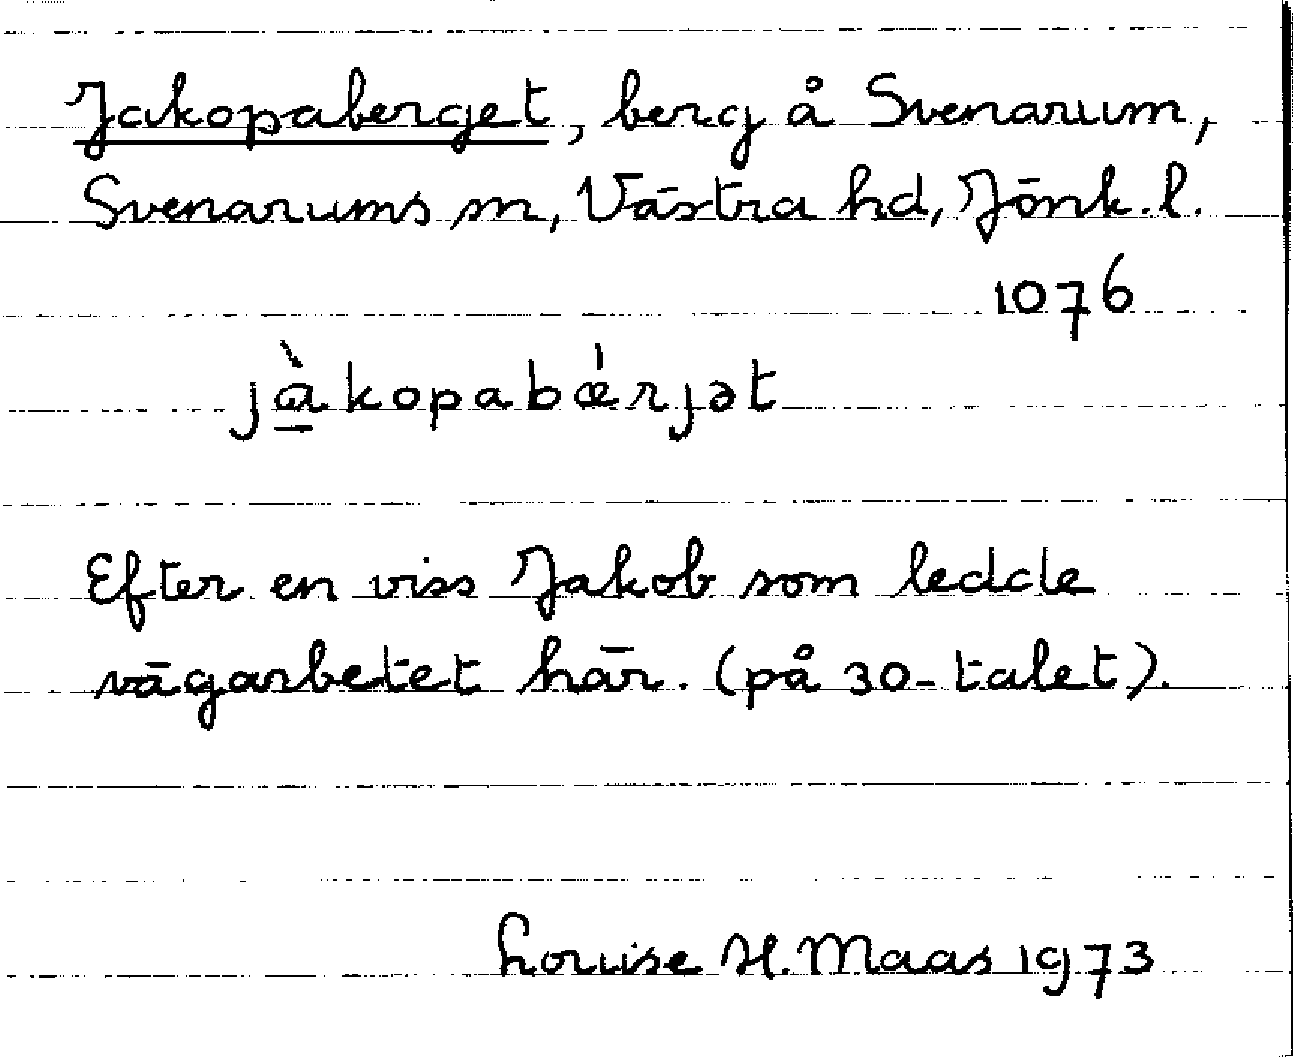 Jakopaberget, berg å Svenarum,
Svenarums sn, Västra hd, Jönk. l.
1076
jàkopabǽrjət
Efter en viss Jakob som ledde
vägarbetet här. (på 30-talet).
Louise H. Maas 1973